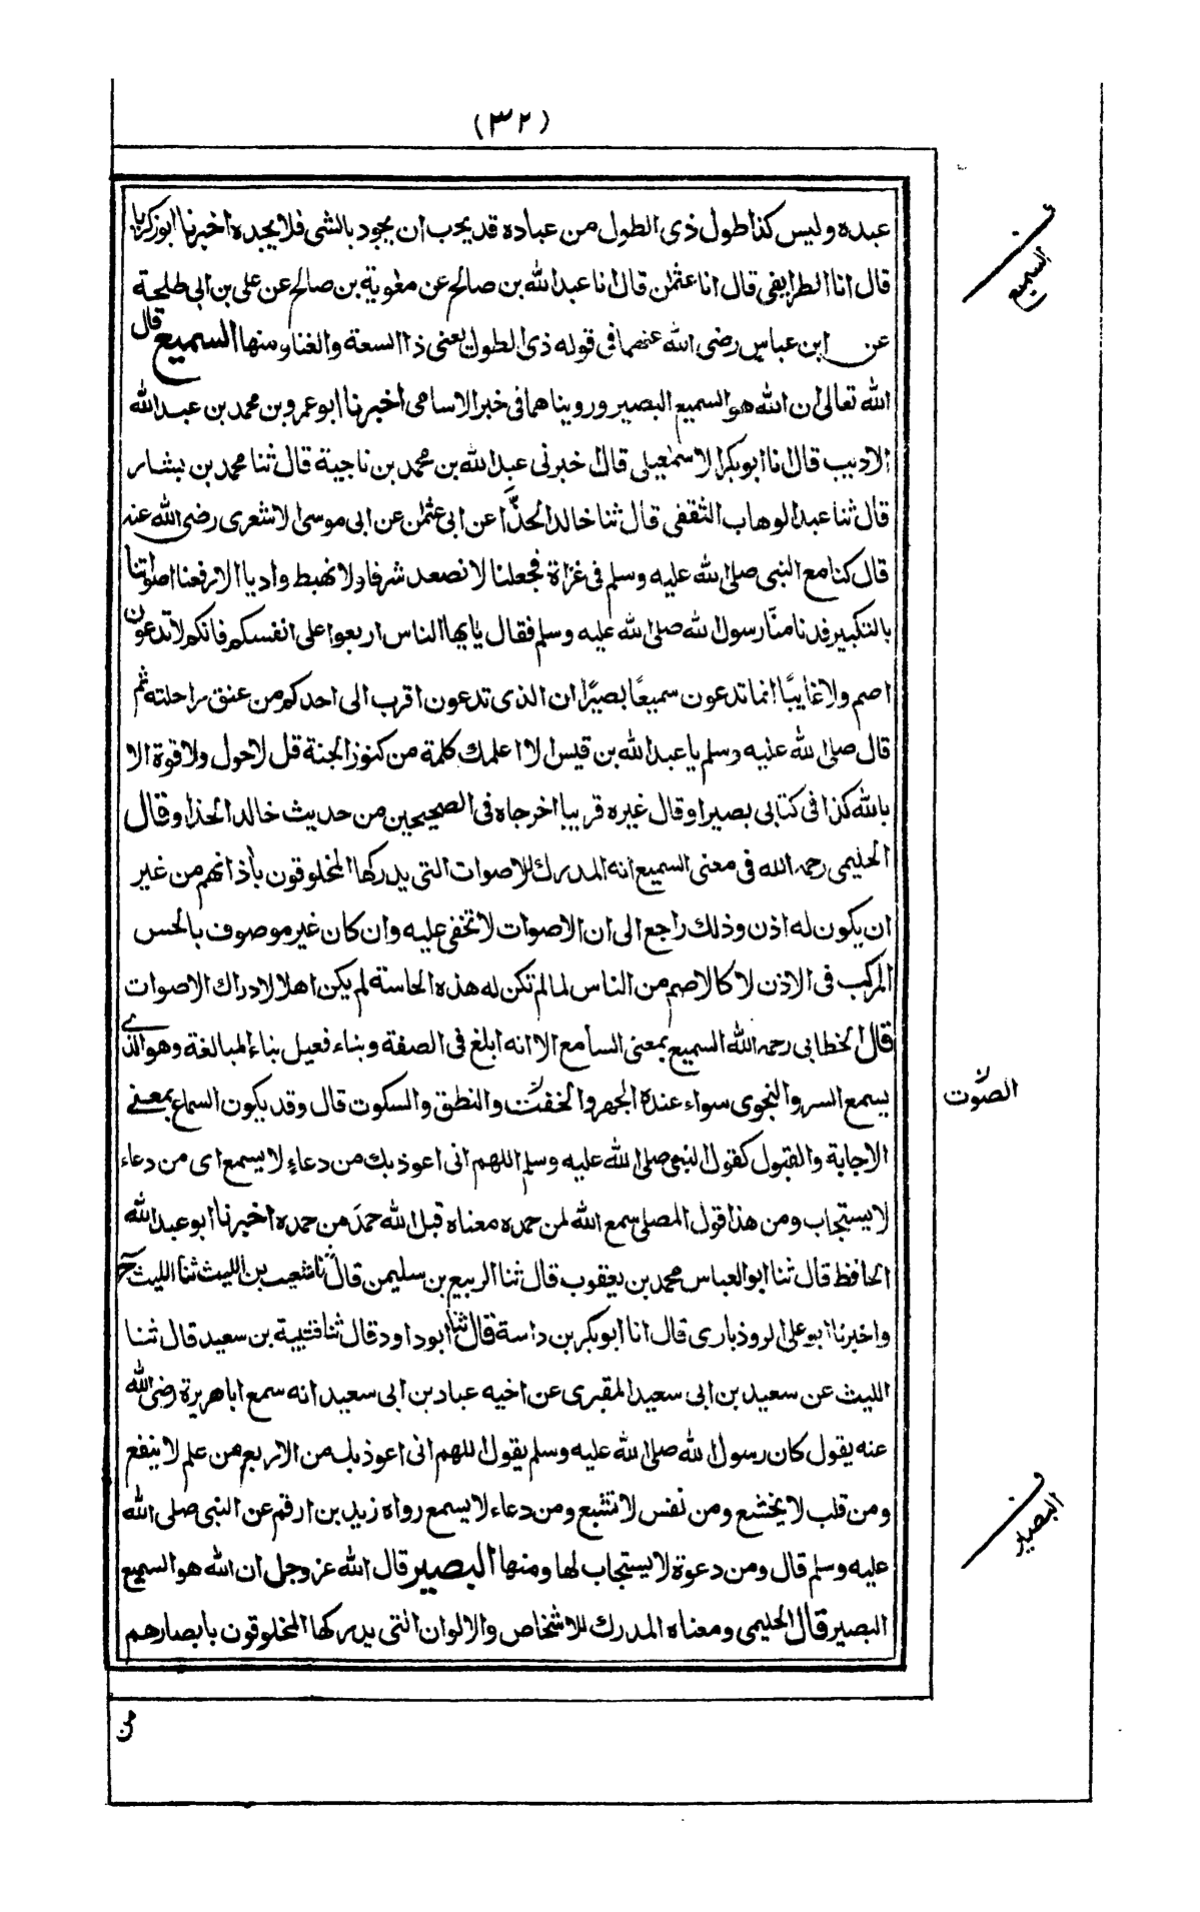 (٣٢)
السميع
عبده وليس كذا طول ذى الطول من عباده قد يحب ان يجود بالشى فلا يجده اخبرنا ابوزكريا
قال انا الطرايفى قال انا عثمٰن قال انا عبدالله بن صالح عن معٰوية بن صالح عن على بن ابى طلحة
عن ابن عباس رضى الله عنهما فى قوله ذى الطول يعنى ذا السعة والغنا ومنها السميع قال
الله تعالى ان الله هو السميع البصير وروينا هما فى خبر الاسامى اخبرنا ابوعمرو بن محمد بن عبدالله
الاديب قال نا ابوبكر الاسمٰعيلى قال خبرنى عبدالله بن محمد بن ناجية قال ثنا محمد بن بشار
قال ثنا عبدالوهاب الثقفى قال ثنا خالد الحذّا عن ابى عثمٰن عن ابى موسى الاشعرى رضى الله عنه
قال كنا مع النبى صلى الله عليه وسلم فى غزاة فجعلنا لا نصعد شرفا ولا نهبط واديا الا رفعنا اصواتنا
بالتكبير فدنا منّا رسول الله صلى الله عليه وسلم فقال يٰايها الناس اربعوا على انفسكم فانكم لا تدعون
اصم ولا غايبًا انما تدعون سميعًا بصيرًا ان الذى تدعون اقرب الى احدكم من عنق راحلته ثم
قال صلى الله عليه وسلم يا عبدالله بن قيس الا اعلمك كلمة من كنوز الجنة قل لا حول ولا قوة الا
بالله كذا فى كتابى بصيرا وقال غيره قريبا اخرجاه فى الصحيحين من حديث خالد الحذا وقال
الحليمى رحمه الله فى معنى السميع انه المدرك للاصوات التى يدركها المخلوقون باٰذانهم من غير
ان يكون له اذن وذلك راجع الى ان الاصوات لا تخفى عليه وان كان غير موصوف بالحس
المركب فى الاذن لا كالاصم من الناس لما لم تكن له هذه الحاسة لم يكن اهلا لادراك الاصوات
قال الخطابى رحمه الله السميع بمعنى السامع الا انه ابلغ فى الصفة وبناء فعيل بناء المبالغة وهو الذى
يسمع السر والنجوى سواء عنده الجهر والخفت والنطق والسكوت قال وقد يكون السماع بمعنى
الصوت
الاجابة والقبول كقول النبى صلى الله عليه وسلم اللهم انى اعوذ بك من دعاءٍ لا يسمع اى من دعاء
لا يستجاب ومن هذا قول المصلى سمع الله لمن حمده معناه قبل الله حمدَ من حمده اخبرنا ابوعبدالله
الحافظ قال ثنا ابوالعباس محمد بن يعقوب قال ثنا الربيع بن سليمن قال ثنا شعيب بن الليث ثنا الليث ح
واخبرنا ابوعلى الروذبارى قال انا ابوبكر بن داسة قال ثنا ابوداود قال ثنا قتيبة بن سعيد قال ثنا
الليث عن سعيد بن ابى سعيد المقبرى عن اخيه عباد بن ابى سعيد انه سمع اباهريرة رضى الله
عنه يقول كان رسول الله صلى الله عليه وسلم يقول اللهم انى اعوذ بك من الاربع من علم لا ينفع
ومن قلب لا يخشع ومن نفس لا تشبع ومن دعاء لا يسمع رواه زيد بن ارقم عن النبى صلى الله
البصير
عليه وسلم قال ومن دعوة لا يستجاب لها ومنها البصير قال الله عز وجل ان الله هو السميع
البصير قال الحليمى ومعناه المدرك للاشخاص والالوان التى يدركها المخلوقون بابصارهم
من